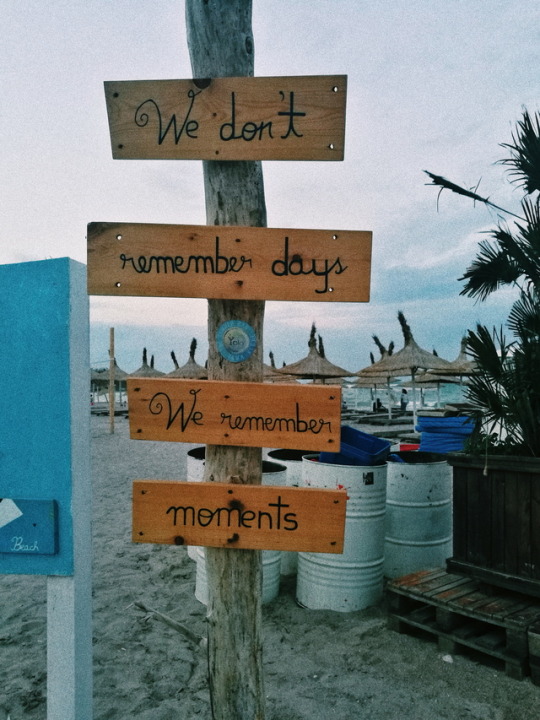 We don't
remember days
We remember
moments
Beach